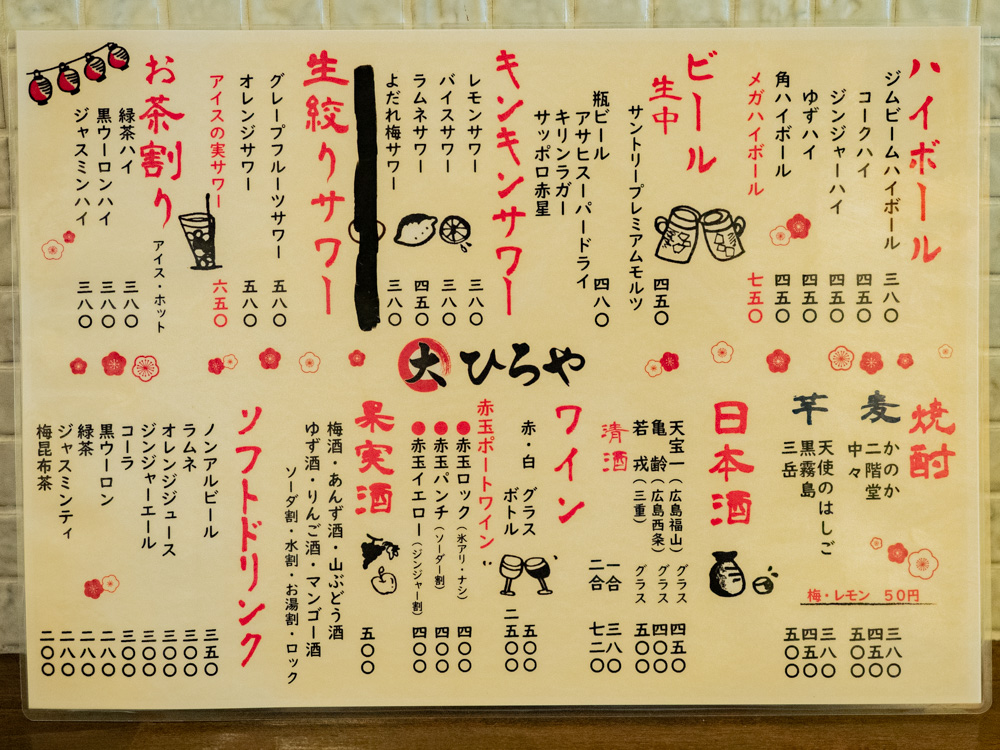 ハイボール
ジムビームハイボール 三八〇
コークハイ 四五〇
ジンジャーハイ 四五〇
ゆずハイ 四五〇
角ハイボール 四五〇
メガハイボール 七五〇
ビール
生中
サントリープレミアムモルツ 四五〇
瓶ビール 四八〇
アサヒスーパードライ
キリンラガー
サッポロ赤星
キンキンサワー
レモンサワー 三八〇
バイスサワー 三八〇
ラムネサワー 四五〇
よだれ梅サワー 三八〇
生絞りサワー
グレープフルーツサワー 五八〇
オレンジサワー 五八〇
アイスの実サワー 六五〇
お茶割り
アイス・ホット
緑茶ハイ 三八〇
黒ウーロンハイ 三八〇
ジャスミンハイ 三八〇
大 ひろや
焼酎
麦
かのか 三八〇
二階堂 四五〇
中々 五〇〇
芋
天使のはしご 三八〇
黒霧島 四五〇
三岳 五〇〇
梅・レモン 50円
日本酒
天宝一(広島福山) グラス 四五〇
亀齢(広島西条) グラス 四〇〇
若戎(三重) グラス 五〇〇
清酒
一合 三八〇
二合 七二〇
ワイン
赤・白 グラス 五〇〇
ボトル 二五〇〇
赤玉ポートワイン
赤玉ロック(氷アリ・ナシ) 四〇〇
赤玉パンチ(ソーダー割) 四〇〇
赤玉イエロー(ジンジャー割) 四〇〇
果実酒
梅酒・あんず酒・山ぶどう酒 五〇〇
ゆず酒・りんご酒・マンゴー酒
ソーダ割・水割・お湯割・ロック
ソフトドリンク
ノンアルビール 三五〇
ラムネ 三〇〇
オレンジジュース 三〇〇
ジンジャーエール 三〇〇
コーラ 三〇〇
黒ウーロン 二八〇
緑茶 二八〇
ジャスミンティ 二八〇
梅昆布茶 二〇〇